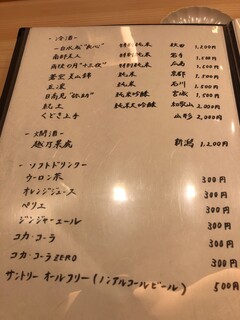 - 冷酒 -
特別純米 秋田 1,500円
南部美人 特別純米 岩手 1,500円
特別純米 広島 1,500円
蒼空 美山錦 純米 京都 1,500円
五凛 純米 石川 1,500円
日高見 純米吟醸 宮城 1,500円
紀土 純米大吟醸 和歌山 2,000円
くどき上手 山形 2,000円
- 燗酒 -
越乃景虎 新潟 1,200円
- ソフトドリンク -
ウーロン茶 300円
オレンジジュース 300円
ペリエ 300円
ジンジャーエール 300円
コカ・コーラ 300円
コカ・コーラ ZERO 300円
サントリー オールフリー (ノンアルコールビール) 500円